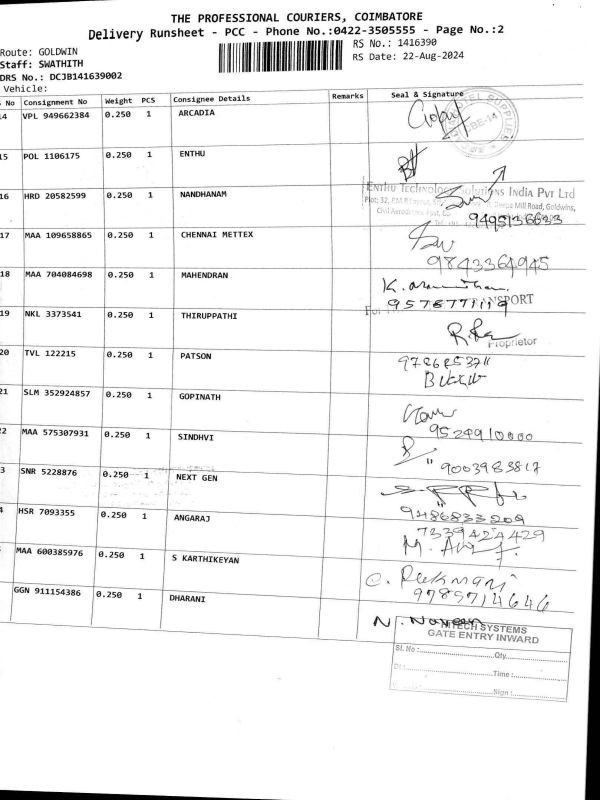 THE PROFESSIONAL COURIERS, COIMBATORE
Delivery Runsheet - PCC - Phone No.:0422-3505555 - Page No.:2
Route: GOLDWIN
RS No.: 1416390
Staff: SWATHITH
RS Date: 22-Aug-2024
DRS No.: DCJB141639002
Vehicle:
No Consignment No Weight PCS Consignee Details Remarks Seal & Signature
14 VPL 949662384 0.250 1 ARCADIA
15 POL 1106175 0.250 1 ENTHU
ENTHU TECHNOLOGY SOLUTIONS INDIA PVT LTD
16 HRD 20582599 0.250 1 NANDHANAM
17 MAA 109658865 0.250 1 CHENNAI METTEX
9843364945
18 MAA 704084698 0.250 1 MAHENDRAN
TRANSPORT
19 NKL 3373541 0.250 1 THIRUPPATHI
Proprietor
20 TVL 122215 0.250 1 PATSON
21 SLM 352924857 0.250 1 GOPINATH
9524910000
22 MAA 575307931 0.250 1 SINDHVI
9003983817
3 SNR 5228876 0.250 1 NEXT GEN
9486833209
4 HSR 7093355 0.250 1 ANGARAJ
7339424429
MAA 600385976 0.250 1 S KARTHIKEYAN
9789714646
GGN 911154386 0.250 1 DHARANI
SYSTEMS
GATE ENTRY INWARD
Sl. No : Qty
Time :
Sign :